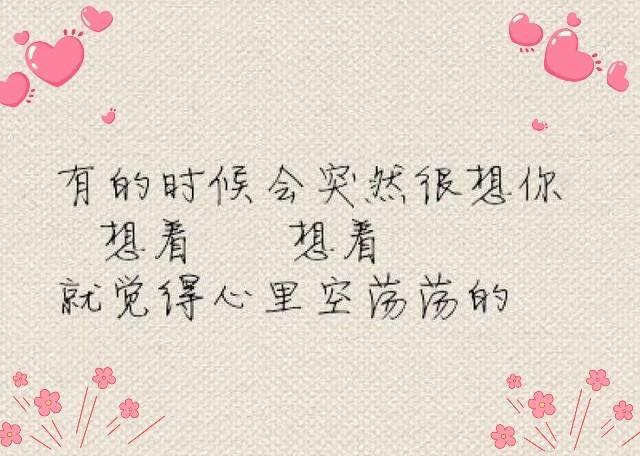 有的时候会突然很想你
想着 想着
就觉得心里空荡荡的